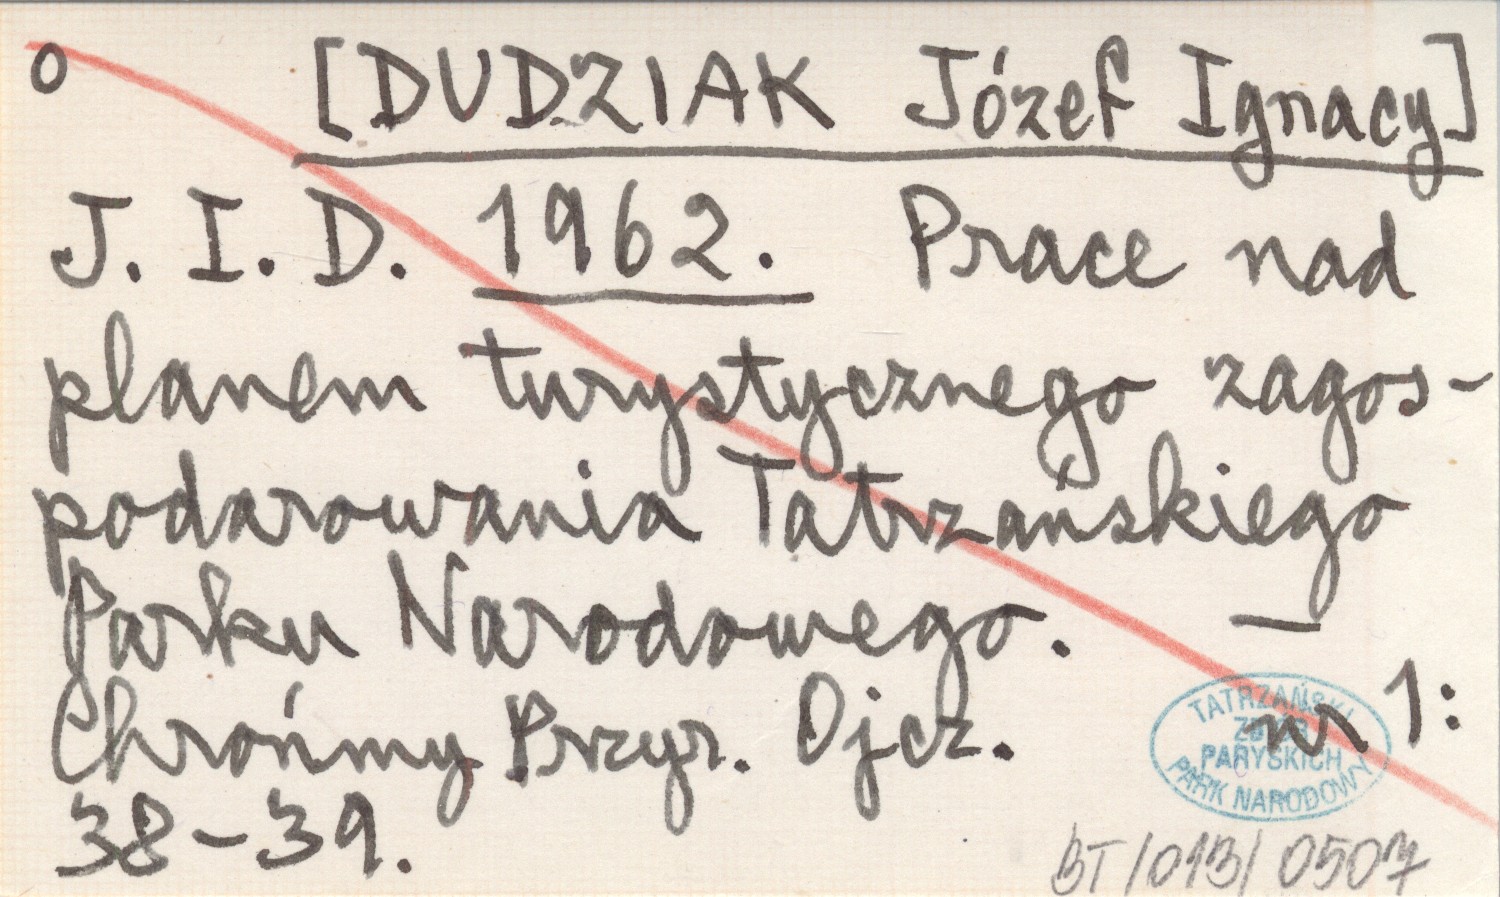 o [DUDZIAK Józef Ignacy]
J. I. D. 1962. Prace nad
planem turystycznego zagos-
podarowania Tatrzańskiego
Parku Narodowego. —
Chrońmy Przyr. Ojcz. nr 1:
38-39.
TATRZAŃSKI
ZBIÓR
PARYSKICH
PARK NARODOWY
BT/013/0507